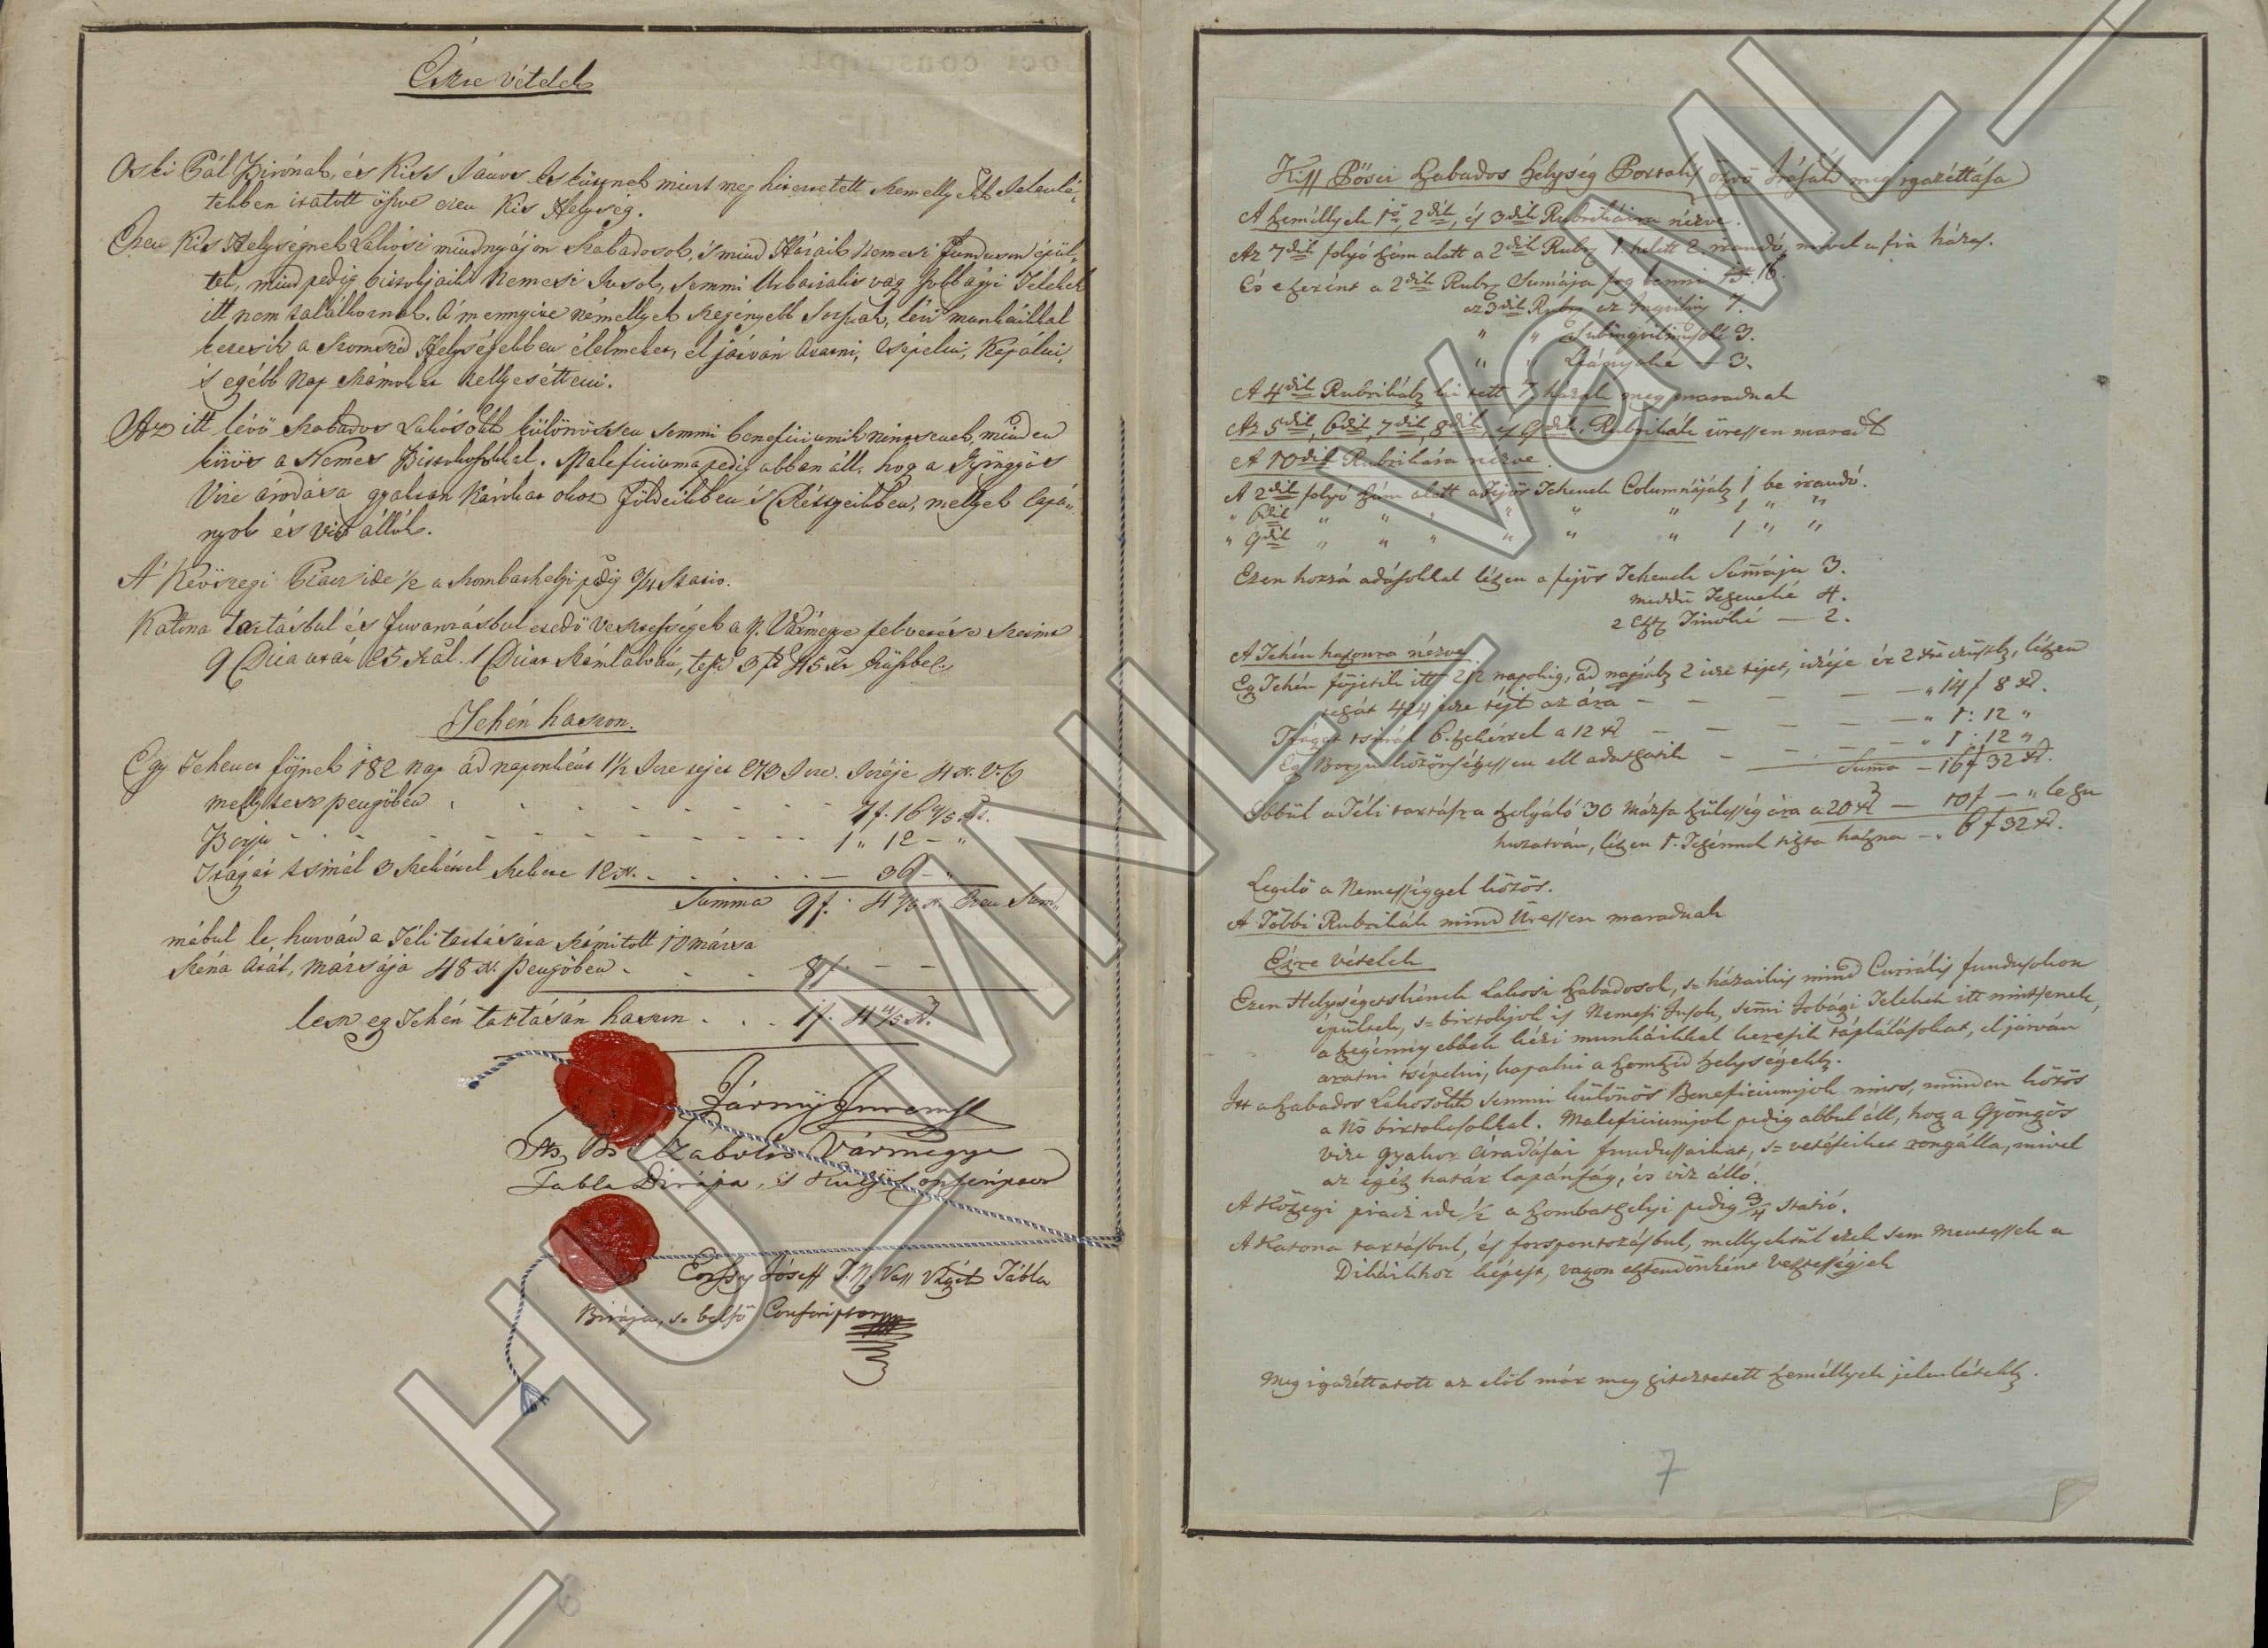 Észre vételek
Oski Pál Birónak, és Kiss János Esküttnek mint meg hiteltetett személlyek Jelenlé-
tekben iratott öszve ezen Kis Helység.
Ezen Kis Helységnek Lakósi mindnyájon Szabadosok, 's mind Házaik Nemesi Funduson épül-
tek, mind pedig birtokjaik Nemesi Jusok, semmi Urbarialis vagy Jobbágyi Telekek
itt nem találkoznak. A mennyire némellyek szegényebb Sorsuak, kézi munkáikkal
keresik a szomszéd Helységekben élelmeket, el járván Aratni, Csépelni, Kapálni,
's egébb Nap számokat tellyesétteni.
Az itt lévő szabados Lakósokk különössen semmi beneficiumik nintsenek, minden
közös a Nemes Birtokosokkal. Maleficiuma pedig abban áll, hog a Gyöngyös
Vize áradása gyakran Károkat okoz földeikben és Réttyeikben, mellyek lapá-
nyok és viz állók.
A' Kőszegi Piacz ide 1/2 a Szombathelyi pedig 3/4 Statio.
Katona tartásbul és fuvarozásbul eredő veszteségek a N. Vármegye fel vetése szerint
9 Dica után 25 Xával 1 Dicat számlálván, tesz 3 f 45 Xr Ezüstbe.
Tehén haszon.
Egy Tehenet fejnek 182 nap ád naponként 1 1/2 Icze tejet 273 Icze. Iczéje 4 x. V. Cz
melly tesz pengőben . - - - - - - - 7 f. 16 4/5 xr.
Borju - - - - - - - - - - - 1 " 12 - "
Trágyát tsinál 3 szekérrel szekere 12 x. . . . . . - 36 - "
Summa 9 f. 4 4/5 x. Ezen Sum-
mábul le huzván a Téli tartására számitott 10 mázsa
széna árát, mázsája 48 x. Pengőben . . . 8 f. - -
lesz eg Tehén tartásán haszon . . . 1 f. 4 4/5 x.
Jármy Imre mk
Ns. Szabolcs Vármegye
Tabla Birája, és külső Conscriptor
József T. N. Vass Vgyei Tábla
Birája, s= belső Conscriptor
Kiss Pősei Szabados Helység Portalis öszve Irásának meg igazéttása
A személlyek 1ő, 2dik, és 3dik Rubrikáira nézve.
Az 7dik folyó szám alatt a 2dik Rubr 1 helett 2. irandó, mivel a fia házas.
És e szerént a 2dik Rubr Sumája fog lenni 16.
az 3dik Rubr az Inquilin 7.
" " Subinquilinusoké 3.
" " Leányoké - 3.
A 4dik Rubrikába ki tett 7 házak meg maradnak
Az 5dik, 6dik, 7dik, 8dik, és 9dik Rubrikák üressen maradt
A 10dik Rubrikára nézve.
A 2dik folyó szám alatt a fejős Tehenek Columnájába 1 be irandó.
" 6dik " " " " " " 1 " "
" 9dik " " " " " " 1 " "
Ezen hozzá adásokkal lészen a fejős Tehenek Sumája 3.
meddü Tehenek 4.
2 eszt Tinóké - 2.
A Tehén haszonra nézve
Eg Tehén fejetik itt 212 napokig, ád napjába 2 icze tejet, iczéje ér 2 xrt ezüstb, lészen
tehát 424 icze téjt az ára - - - - - " 14 f 8 xr.
Trágyát tsinál 6. szekérrel a 12 xr - - - - - " 1 : 12 "
Eg Borju közönségessen ell adattatik - - - - " 1 : 12 "
Suma - 16 f 32 xr.
Ebbül a Téli tartásra szolgáló 30 Mázsa szüksség ára a 20 xr - 10 f - " le
huzatván, lészen 1. Tehénnek tiszta haszna - " 6 f 32 xr.
Legelő a Nemességgel közös.
A Többi Rubrikák mind Üressen maradnak
Észre vételek
Ezen Helységetskének Lakosi szabadosok, s= házaikis mind Curiális fundusokon
épültek, s= birtokjok is Nemesi Jusok, semi Jobági Telekek itt nintsenek,
a szegénnyebbek kézi munkáikkal keresik táplálásokat, el járván
aratni tsépelni, kapalni a szomszéd helységekb.
Itt a szabados Lakosokk semmi különös Beneficiumjok nints, minden közös
a Ns birtokosokkal. Maleficiumjok pedig abbul áll, hog a Gyöngös
vize gyakor áradásai fundussaikat, s= vetéseiket rongálla, mivel
az egész határ lapánság, és viz álló.
A Kőszegi piacz ide 1/2 a szombathelyi pedig 3/4 statió.
A Katona tartásbul, és forspontozásbul, mellyektül ezek sem mentessek a
Dikáikhoz képest, vagon esztendőnként veszteségjek
Meg igazéttatott az elöl már meg hiteztetett személlyek jelenlétekb.
7